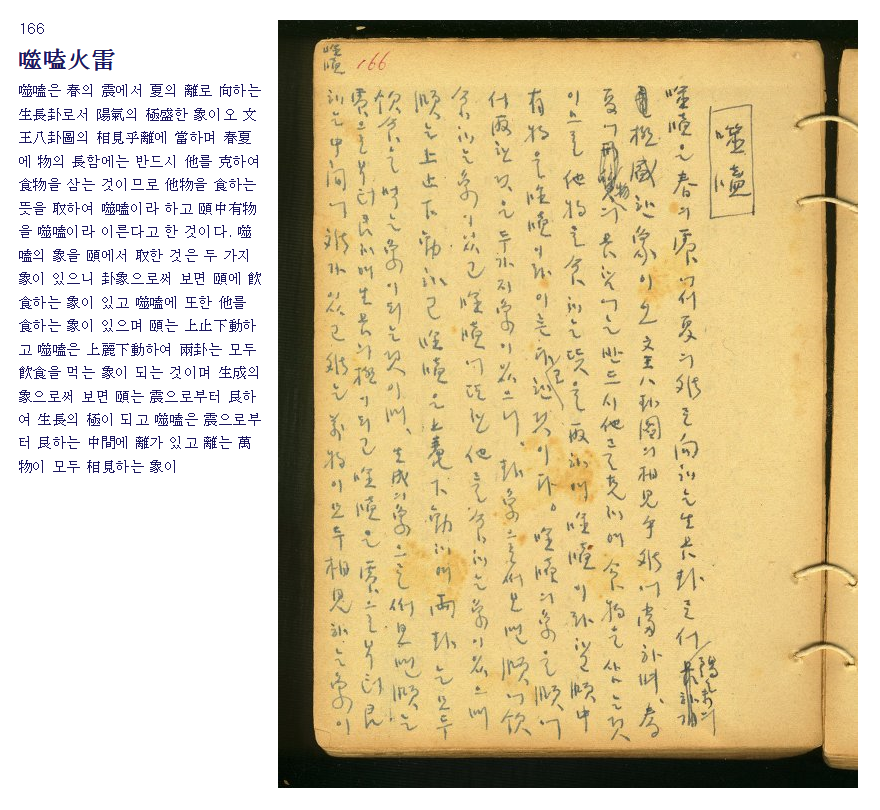 166
噬嗑火雷
噬嗑은 春의 震에서 夏의 離로 向하는
生長卦로서 陽氣의 極盛한 象이오 文
王八卦圖의 相見乎離에 當하며 春夏
에 物의 長함에는 반드시 他를 克하여
食物을 삼는 것이므로 他物을 食하는
뜻을 取하여 噬嗑이라 하고 頤中有物
을 噬嗑이라 이른다고 한 것이다. 噬
嗑의 象을 頤에서 取한 것은 두 가지
象이 있으니 卦象으로써 보면 頤에 飮
食하는 象이 있고 噬嗑에 또한 他를
食하는 象이 있으며 頤는 上止下動하
고 噬嗑은 上麗下動하여 兩卦는 모두
飮食을 먹는 象이 되는 것이며 生成의
象으로써 보면 頤는 震으로부터 艮하
여 生長의 極이 되고 噬嗑은 震으로부
터 艮하는 中間에 離가 있고 離는 萬
物이 모두 相見하는 象이
噬嗑
166
噬嗑
噬嗑은 春의 震에서 夏의 離로 向하는 生長卦로서 陽氣의
極盛한 象이오 文王八卦圖의 相見乎離에 當하며, 春
夏에 物의 長함에는 반드시 他를 克하여 食物을 삼는 것
이므로 他物을 食하는 뜻을 取하여 噬嗑이라 하고 頤中
有物을 噬嗑이라 이른다고 한 것이다。噬嗑의 象을 頤에
서 取한 것은 두 가지 象이 있으니, 卦象으로써 보면 頤에 飮
食하는 象이 있고 噬嗑에 또한 他를 食하는 象이 있으며
頤는 上止下動하고 噬嗑은 上麗下動하여 兩卦는 모두
飮食을 먹는 象이 되는 것이며, 生成의 象으로써 보면 頤는
震으로부터 艮하여 生長의 極이 되고 噬嗑은 震으로부터 艮
하는 中間에 離가 있고 離는 萬物이 모두 相見하는 象이